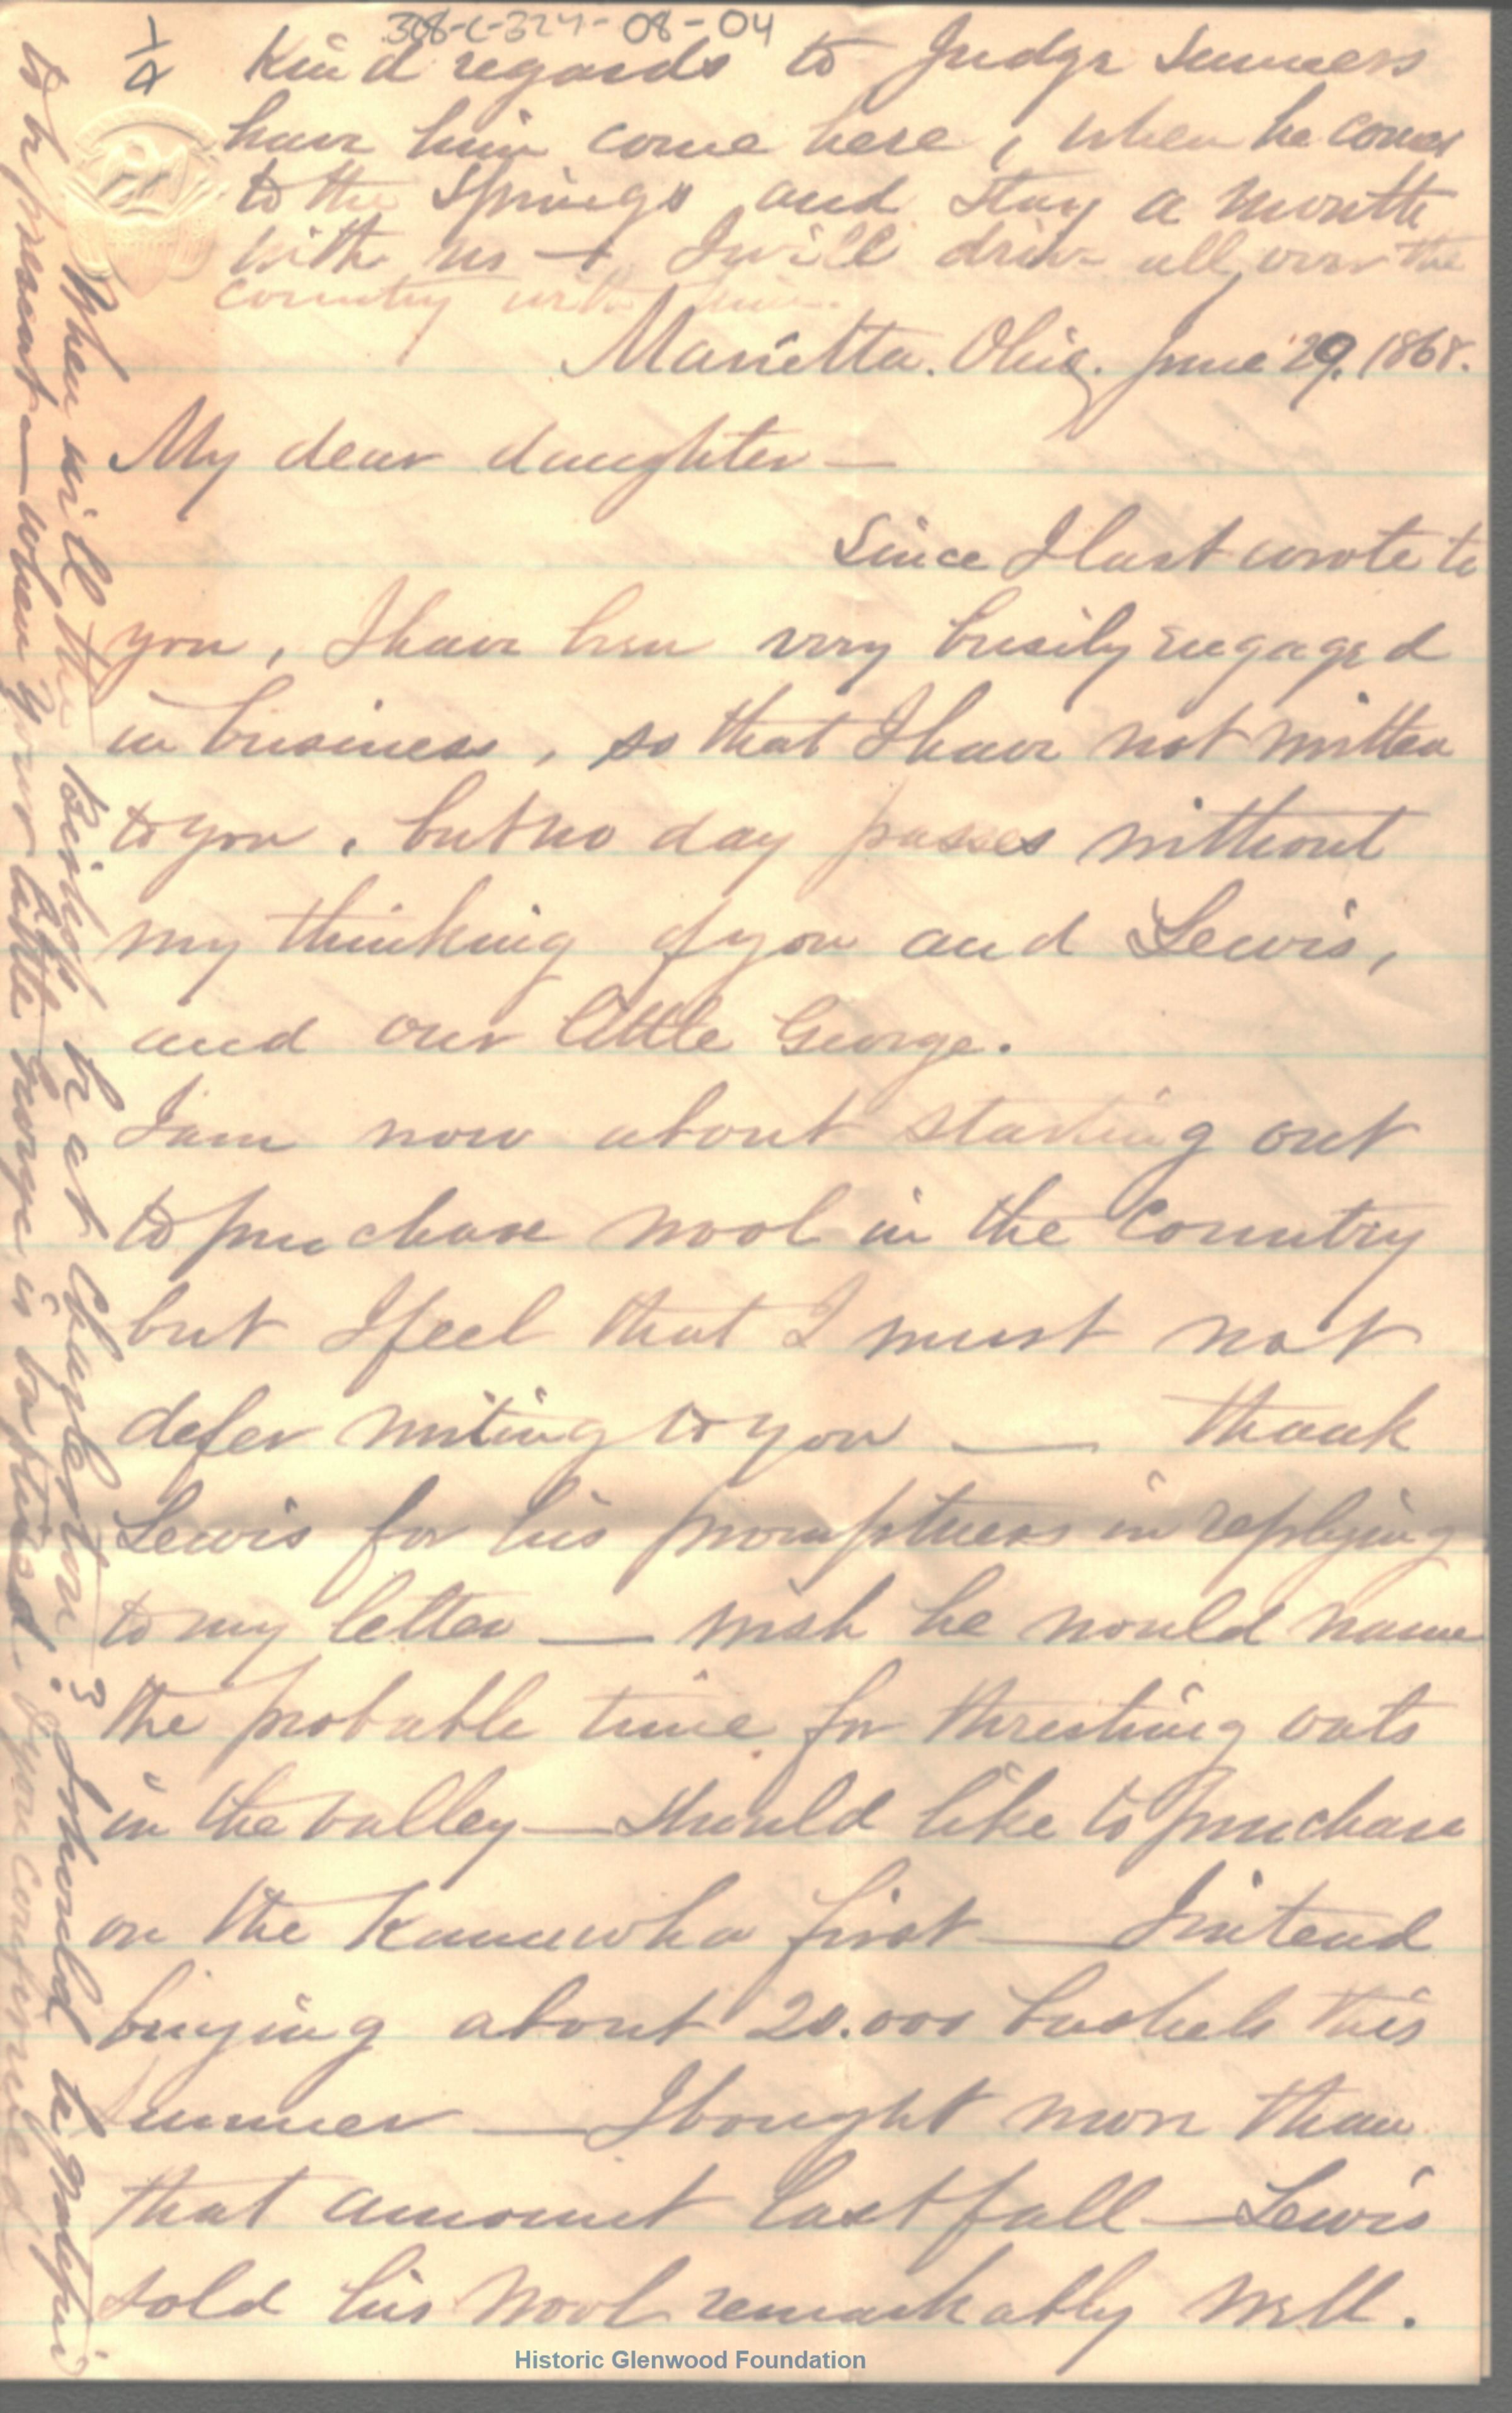 308-C-324-08-04
1/4
Kind regards to Judge Summers
have him come here, when he comes
to the Springs and stay a month
with us - I will drive all over the
country with him.
Marietta. Ohio. June 29. 1868.
My dear daughter —
Since I last wrote to
you, I have been very busily engaged
in business, so that I have not written
to you. but no day passes without
my thinking of you and Lewis,
and our little George.
I am now about starting out
to purchase wool in the country
but I feel that I must not
defer writing to you — thank
Lewis for his promptness in replying
to my letter — wish he would name
the probable time for threshing oats
in the valley — should like to purchase
on the Kanawha first — I intend
buying about 20.000 bushels this
summer — I bought more than
that amount last fall — Lewis
sold his wool remarkably well.
When will the Bishop be at Charleston? I should
to be present — when your little George is baptised - 
Historic Glenwood Foundation